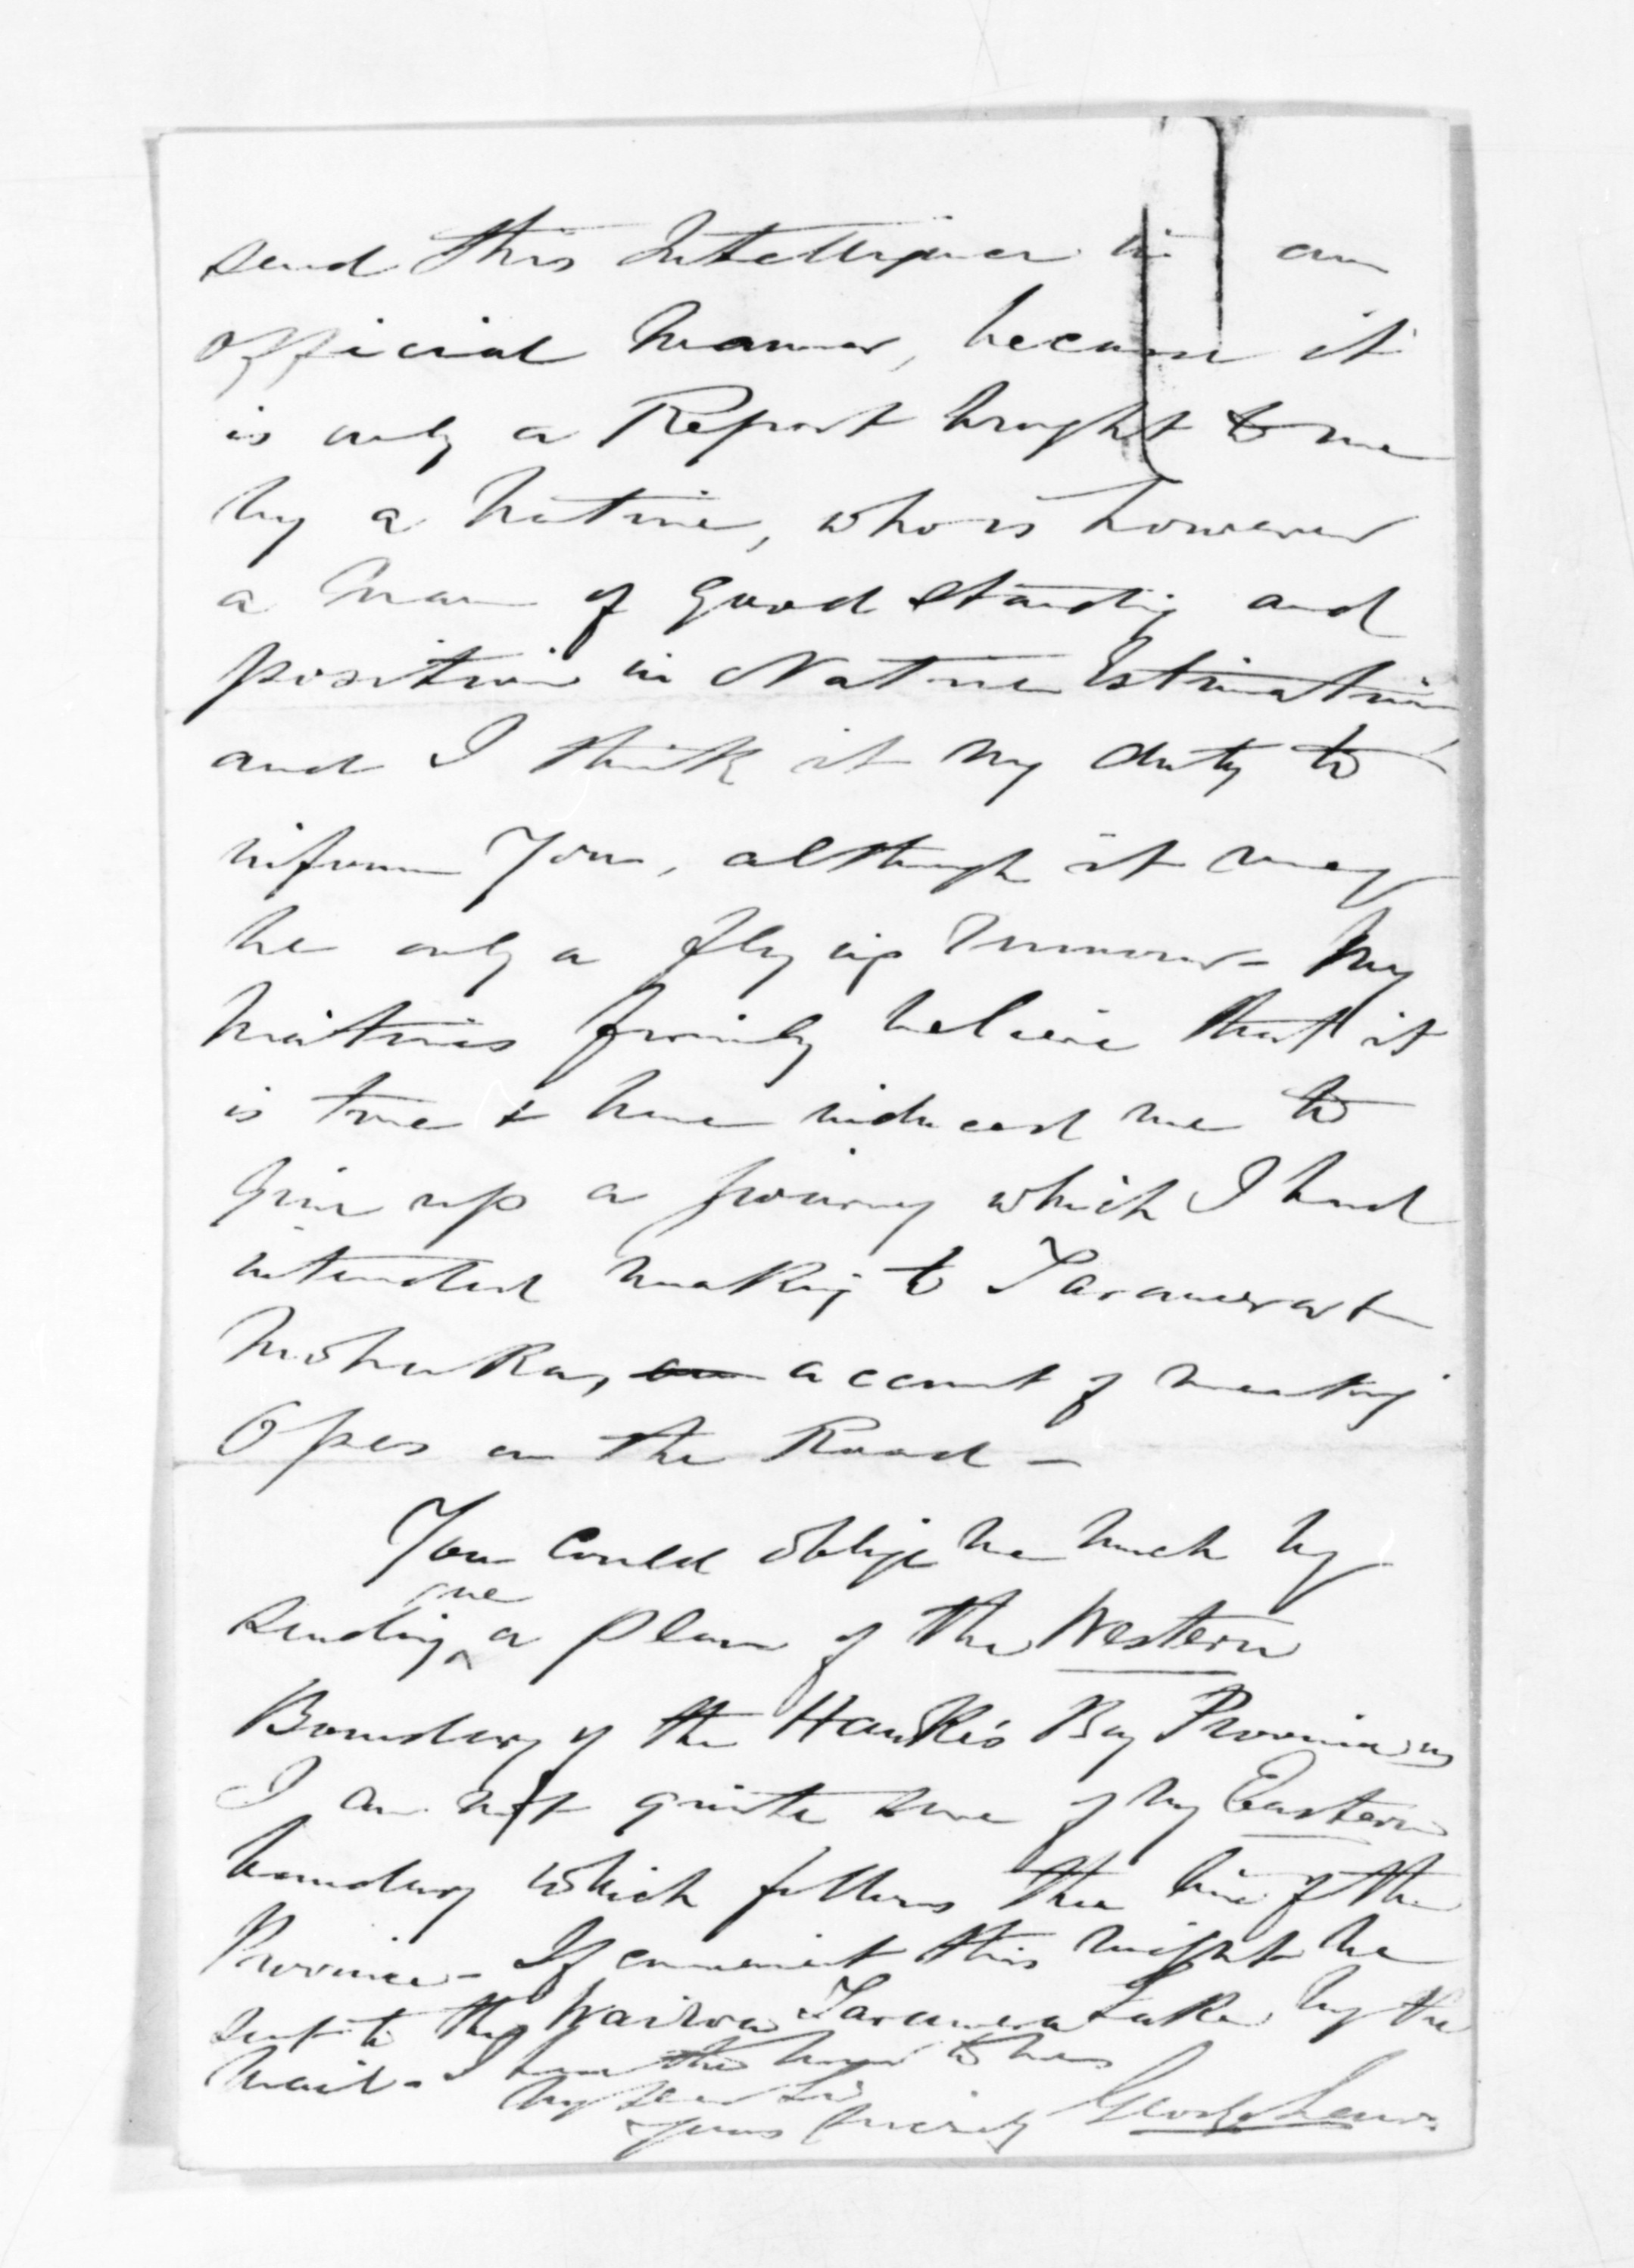 send this Intelligence in an
official manner, because it
is only a Report brought to me
by a Native, who is however
a man of good standing and
position in Native Estimation
and I think it my duty to
inform You, although it may
be only a flying rumour - My
Natives firmly believe that it
is true & have induced me to
give up a journey which I had
intended making to Tarawera &
Mohaka, on account of meeting
Opes on the Road -
You could oblige me much by
sending me a plan of the Western
Boundary of the Hawke's Bay Province as
I am not quite sure of my Eastern
boundary which follows the line of the
Province - If convenient this might be
sent to the Wairoa Tarawera Lake by the
Mail - I have the honor to be
My dear Sir
Yours sincerely George Law